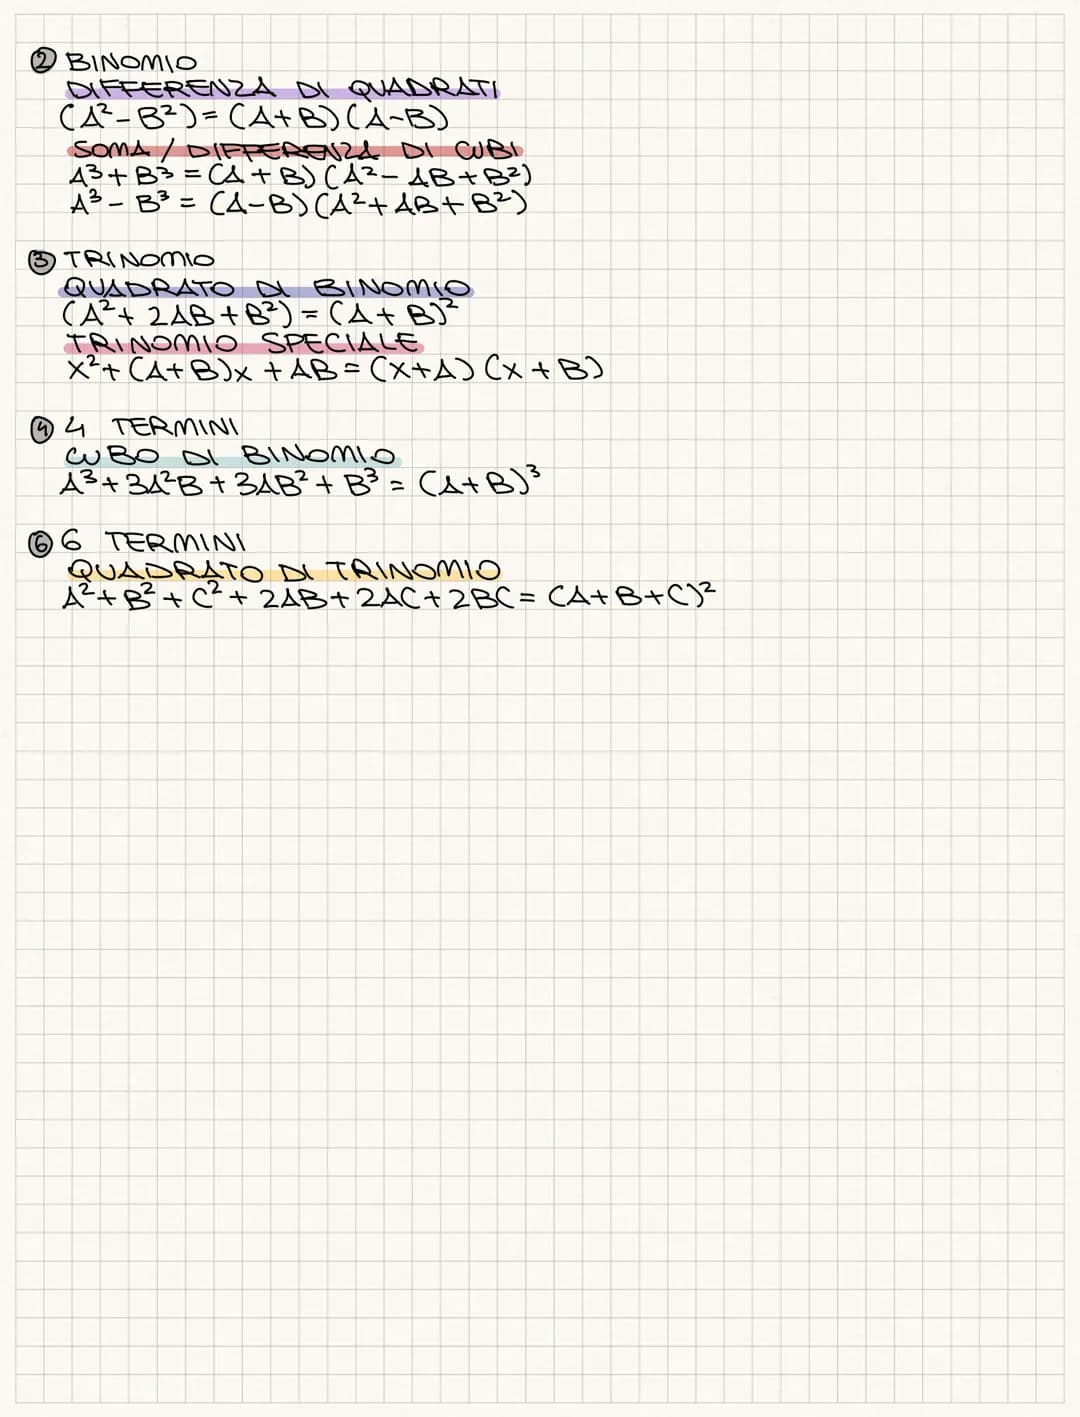 ② BINOMIO
DIFFERENZA DI QUADRATI
(A²-B²)=(A+B)(A-B)
SOMA/DIFFERENZA DI CUBI
A³+B³=(A+B)(A²-AB+B²)
A³-B³=(A-B)(A²+AB+B²)
③ TRINOMIO
QUADRATO DI BINOMIO
(A²+2AB+B²)=(A+B)²
TRINOMIO SPECIALE
X²+(A+B)X+AB=(X+A)(X+B)
④ 4 TERMINI
CUBO DI BINOMIO
A³+3A²B+3AB²+B³=(A+B)³
⑥ 6 TERMINI
QUADRATO DI TRINOMIO
A²+B²+C²+2AB+2AC+2BC=(A+B+C)²